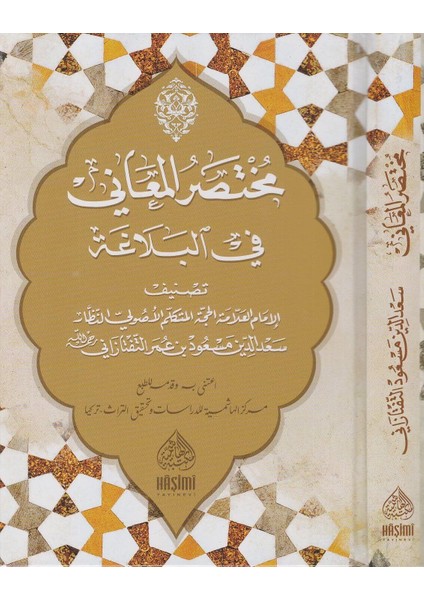 مُخْتَصَرُ المَعَانِي
فِي البَلَاغَةِ
تصنيف
الإمام العلامة الحجة المتكلم الأصولي النظار
سعد الدين مسعود بن عمر التفتازاني
اعتنى به وقدمه للطبع
مركز الهاشمية للدراسات وتحقيق التراث - تركيا
HÂŞİMİ
YAYINEVİ
مختصر المعاني
سعد الدين مسعود التفتازاني
HÂŞİMİ
YAYINEVİ